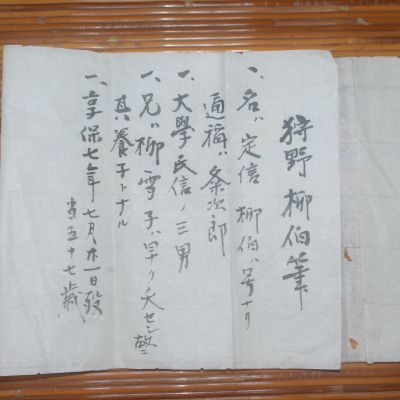 狩野柳伯筆
一、名ハ定信 柳伯ハ号ナリ
通称ハ条次郎
一、大學氏信ノ三男
一、兄ハ柳雪子ハ早ク夭セシ故ニ
其ノ養子トナル
一、享保七年七月廿一日殁
享年五十七歳